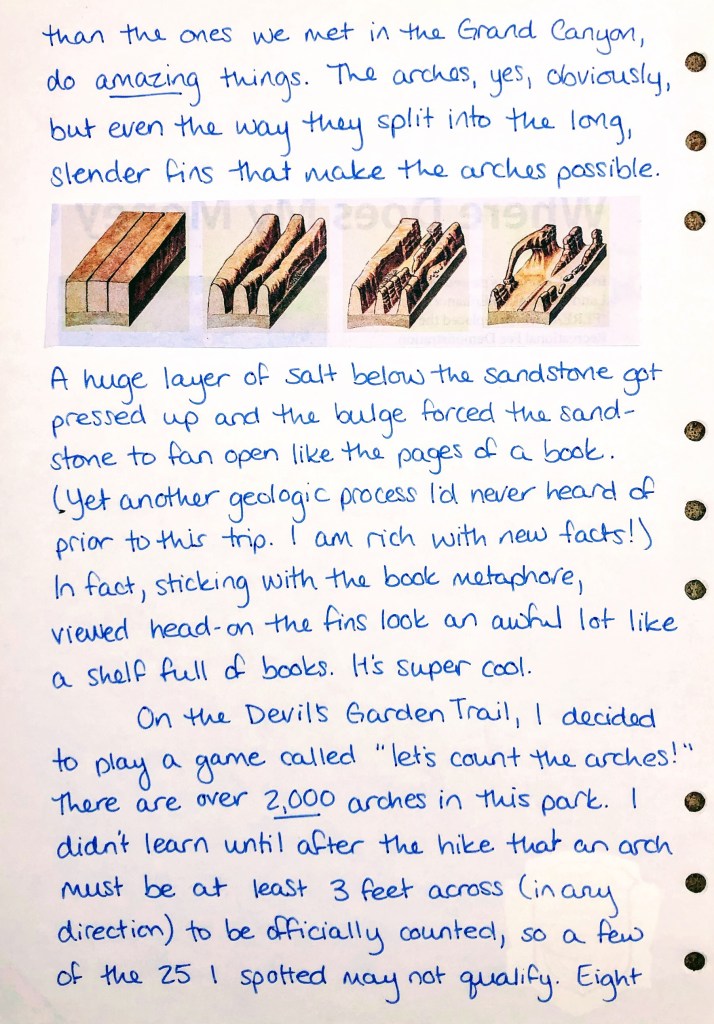 than the ones we met in the Grand Canyon,
do amazing things. The arches, yes, obviously,
but even the way they split into the long,
slender fins that make the arches possible.
Where Does My Money
A huge layer of salt below the sandstone got
pressed up and the bulge forced the sand-
stone to fan open like the pages of a book.
(Yet another geologic process I'd never heard of
prior to this trip. I am rich with new facts!)
In fact, sticking with the book metaphore,
viewed head-on the fins look an awful lot like
a shelf full of books. It's super cool.
On the Devil's Garden Trail, I decided
to play a game called "let's count the arches!"
There are over 2,000 arches in this park. I
didn't learn until after the hike that an arch
must be at least 3 feet across (in any
direction) to be officially counted, so a few
of the 25 I spotted may not qualify. Eight